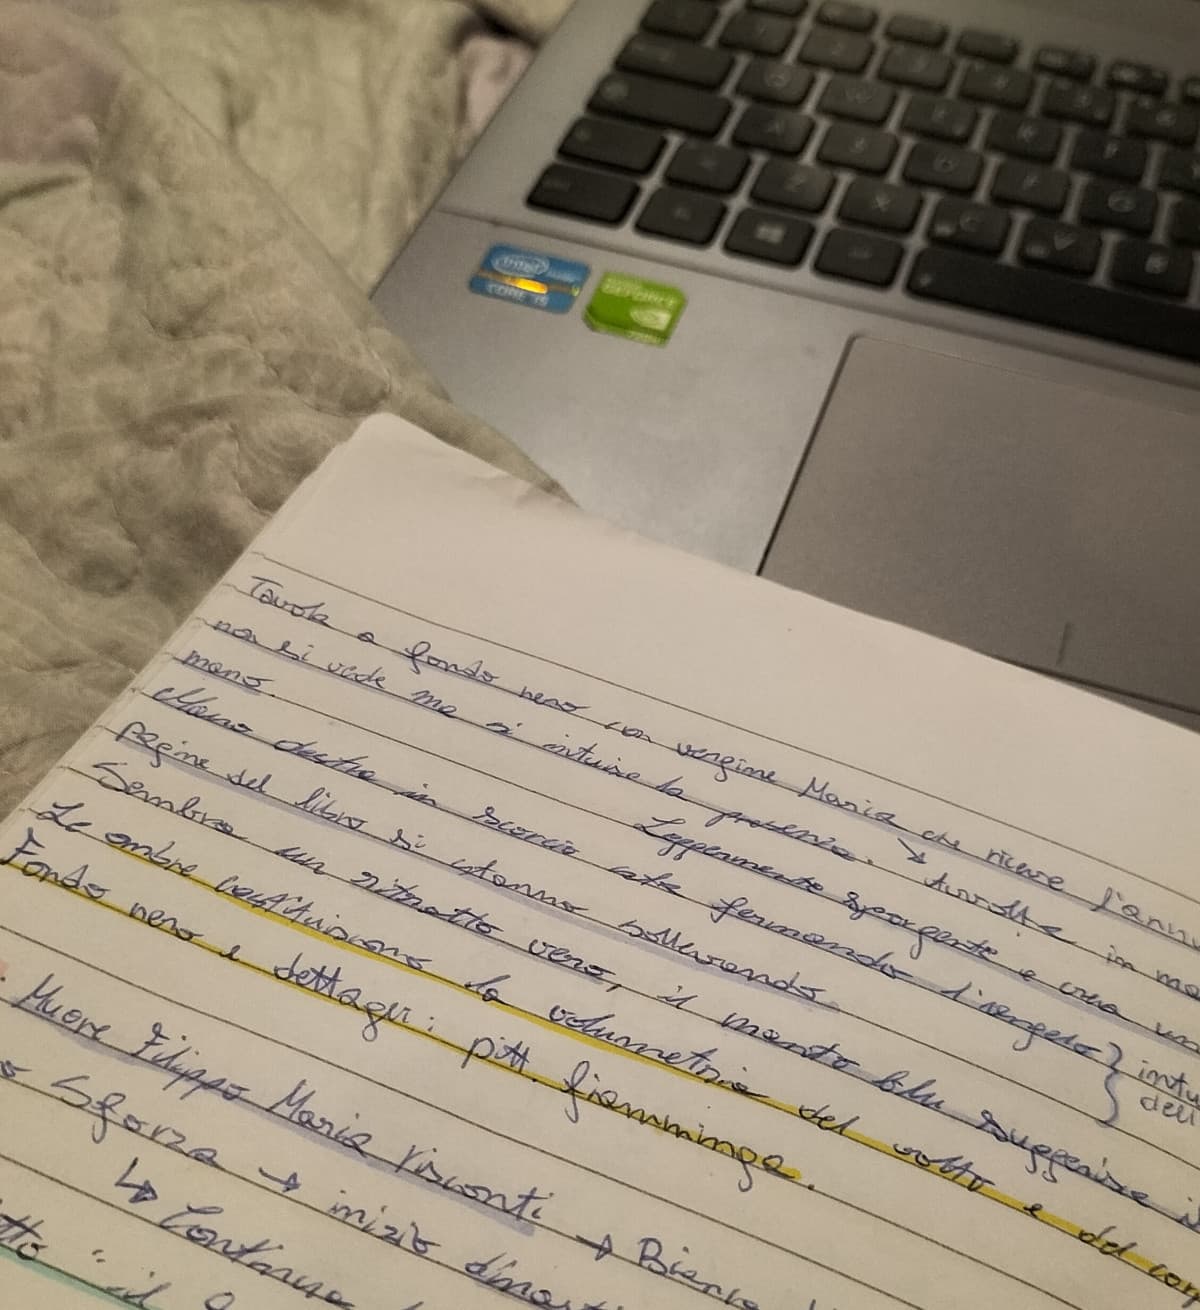 intel
CORE i5
GEFORCE
Tavola a fondo nero con vergine Maria che riceve l'annu
non si vede ma si intuisce la presenza. ↘ Avvolta in ma
mano. Leggermente sporgente e crea un
Mano destra in scorcio
pagine del libro si stanno sollevando. } intu
Sembra un ritratto vero, il manto blu suggerisce dell
Le ombre costituiscono la volumetria del volto e del cor
Fondo nero e dettagli: pitt. fiamminga.
Muore Filippo Maria Visconti → Bianca
Sforza → inizio dinas
↳ Continua
"il